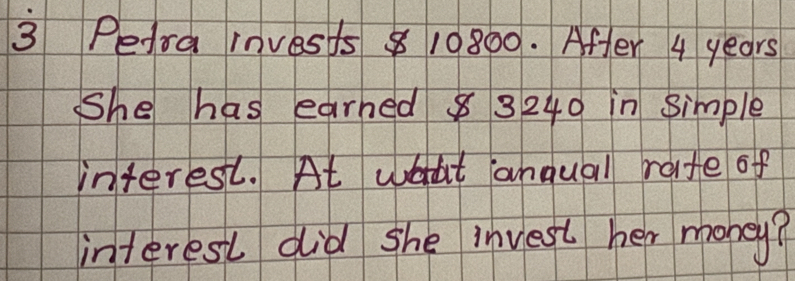 3 Petra invests $ 10800. After 4 years
She has earned $ 3240 in simple
interest. At what anqual rate of
interest did she invest her money?